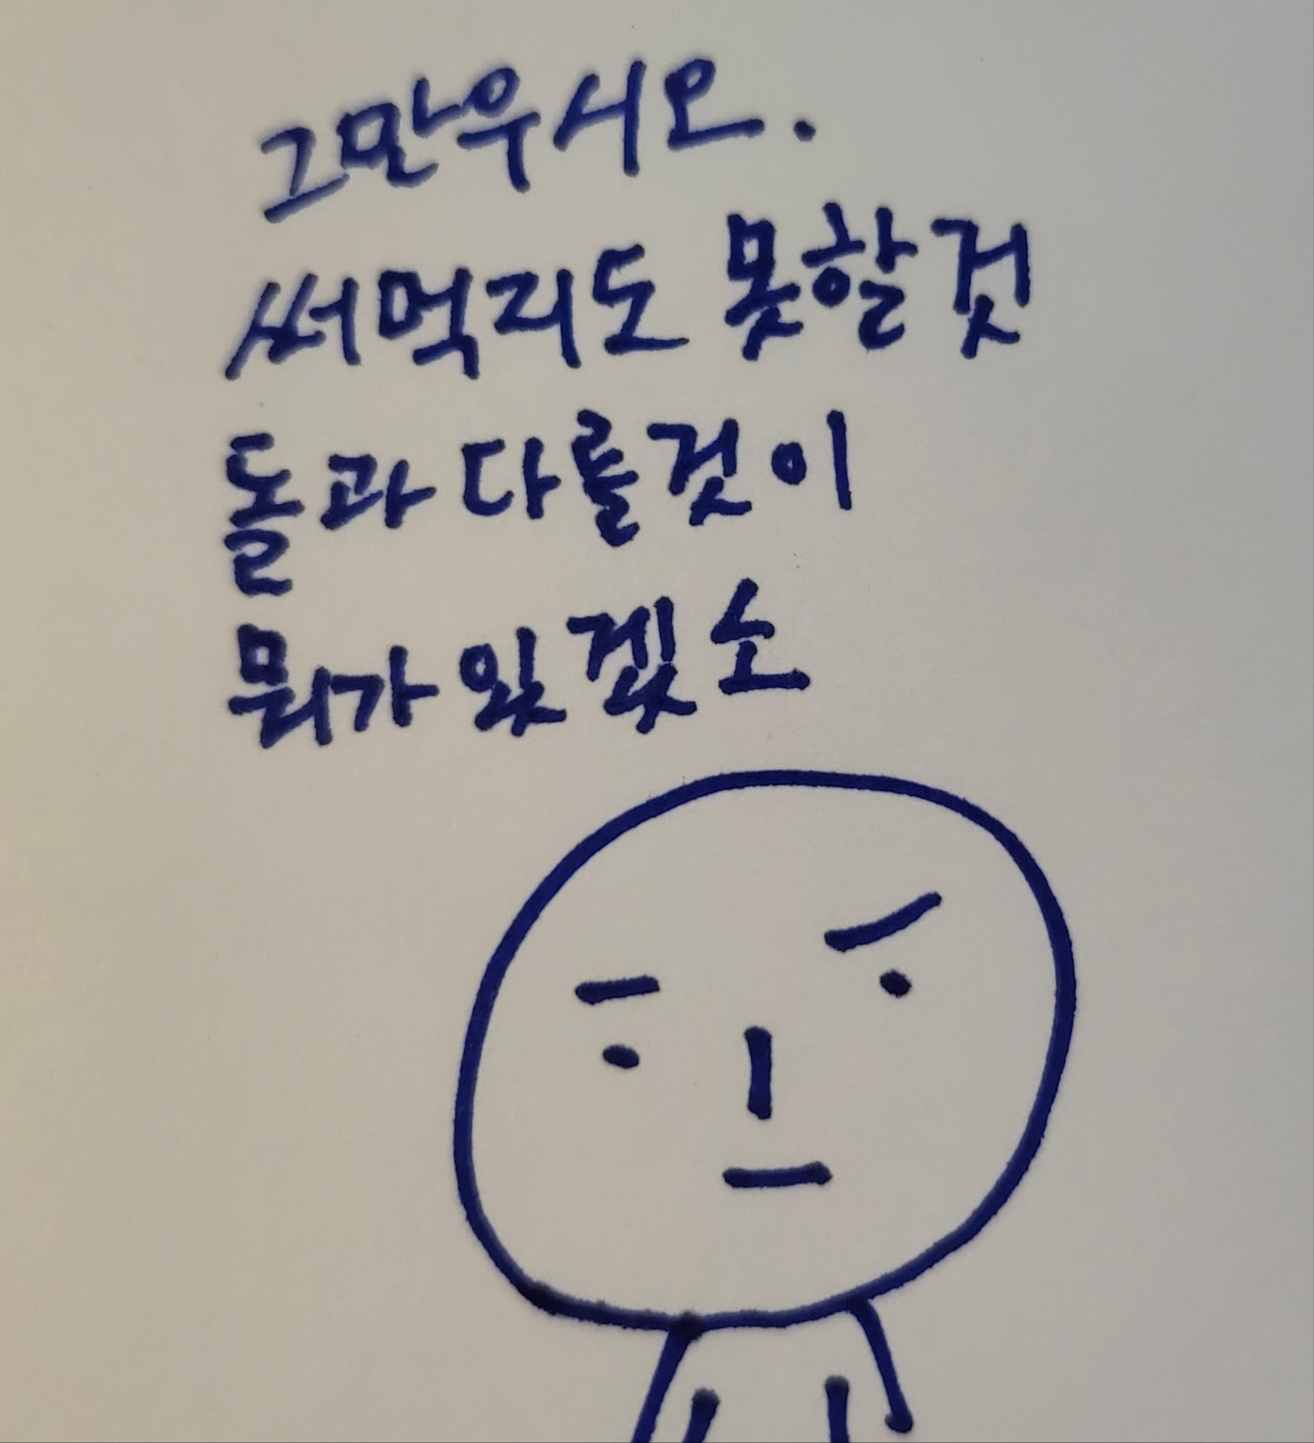 그만우시오.
써먹지도 못할것
돌과 다를것이
뭐가 있겠소